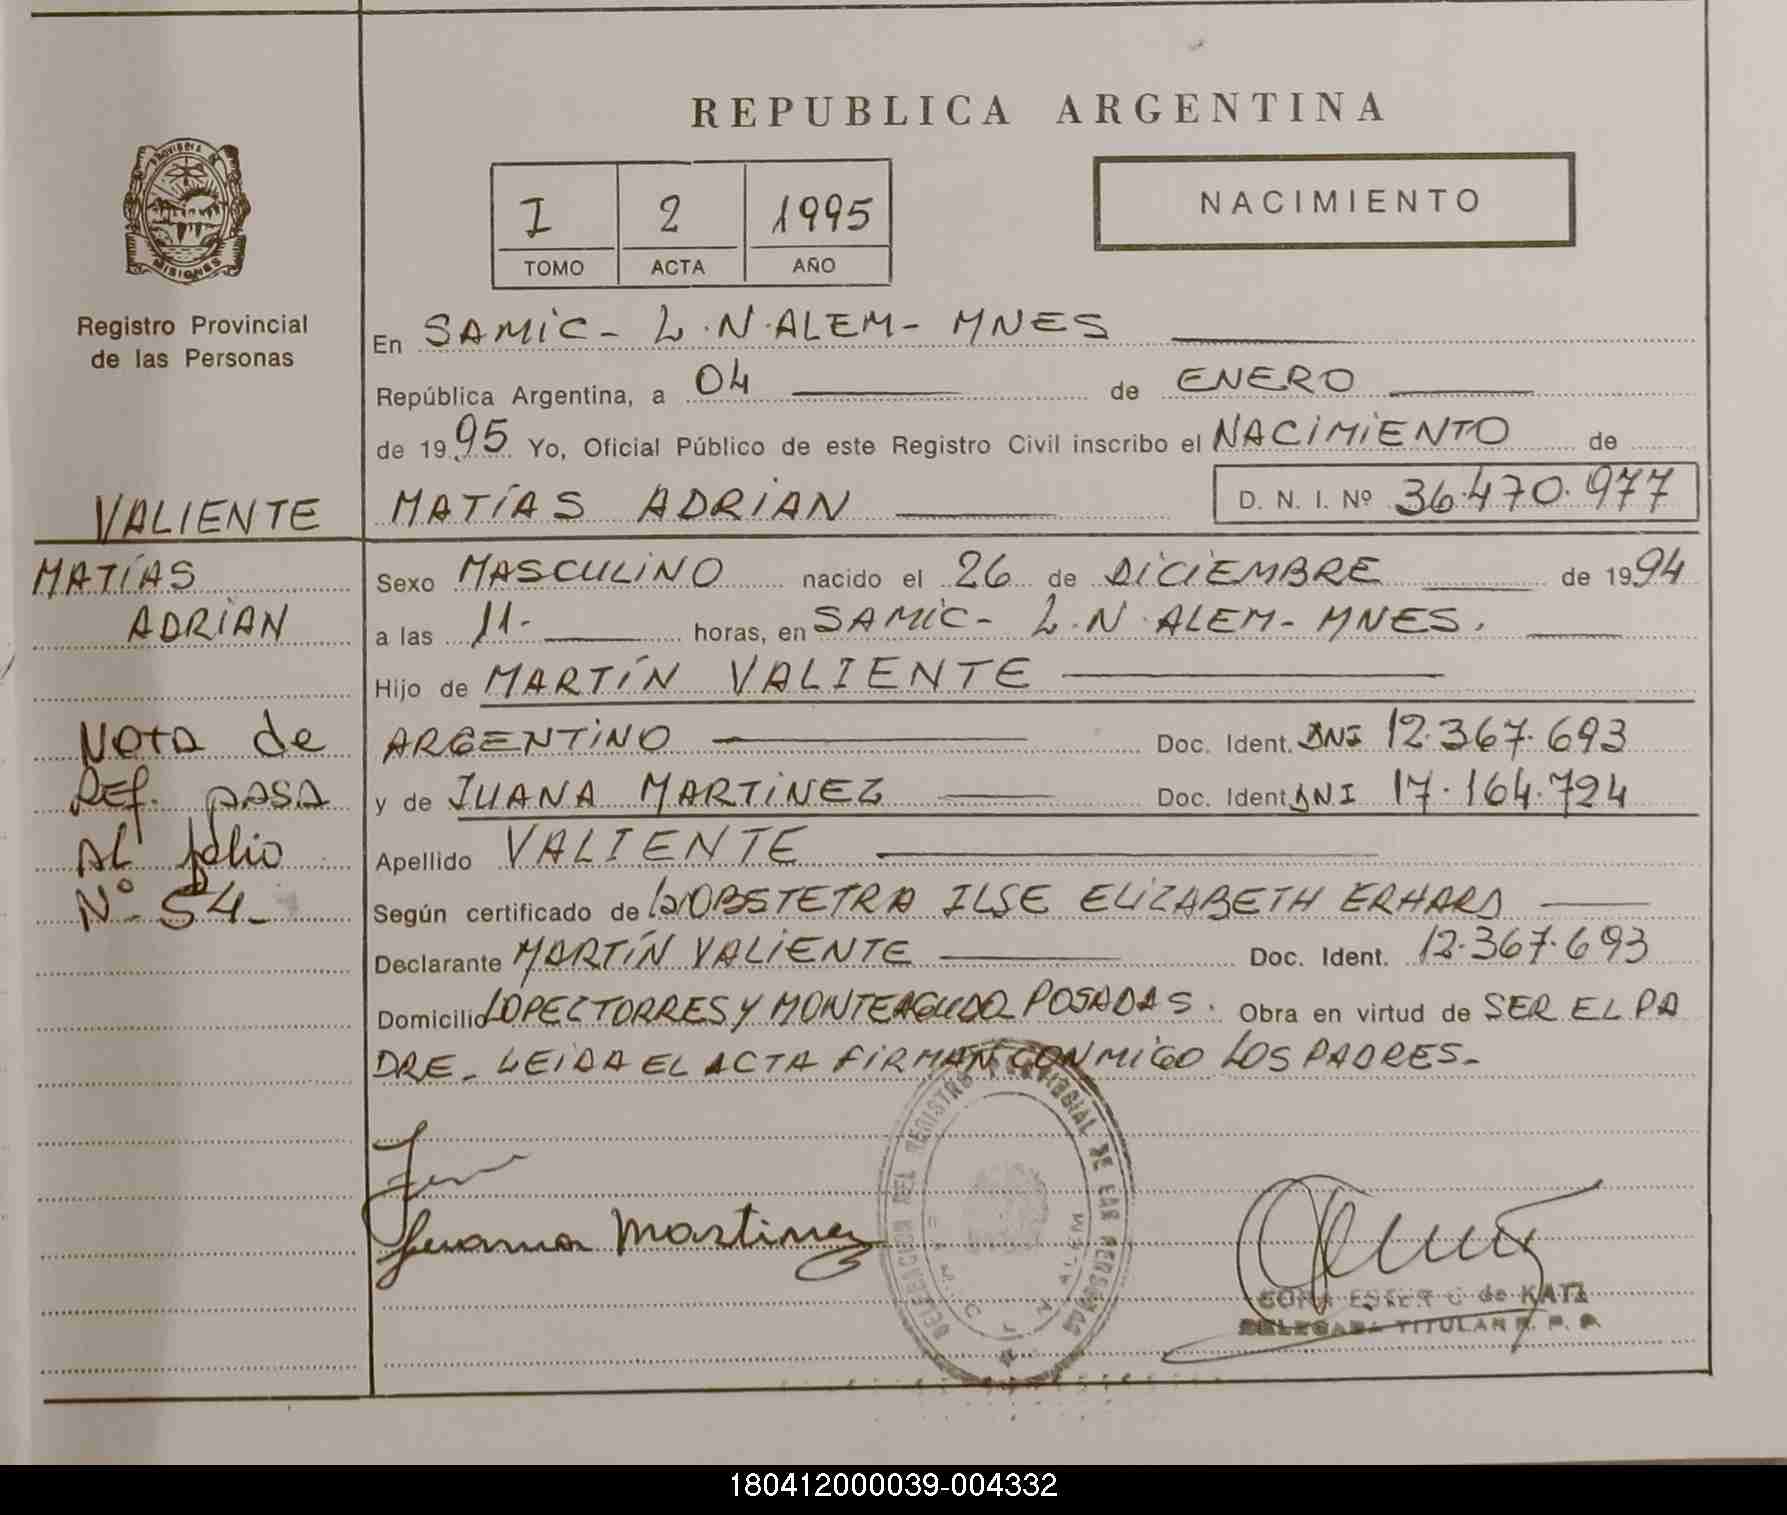 REPUBLICA ARGENTINA
PROVINCIA DE
MISIONES
Registro Provincial
de las Personas
I 2 1995
TOMO ACTA AÑO
NACIMIENTO
En SAMIC - L.N.ALEM - MNES
República Argentina, a 04 de ENERO
de 1995 Yo, Oficial Público de este Registro Civil inscribo el NACIMIENTO de
VALIENTE
MATÍAS ADRIAN D. N. I. Nº 36.470.977
MATÍAS
ADRIAN
Sexo MASCULINO nacido el 26 de DICIEMBRE de 1994
a las 11.- horas, en SAMIC - L.N.ALEM - MNES.
Hijo de MARTÍN VALIENTE
Nota de
Ref. pasa
al folio
Nº 54-
ARGENTINO Doc. Ident. DNI 12.367.693
y de JUANA MARTINEZ Doc. Ident. DNI 17.164.724
Apellido VALIENTE
Según certificado de OBSTETRA ILSE ELIZABETH ERHARD
Declarante MARTÍN VALIENTE Doc. Ident. 12.367.693
Domicilio LOPEZ TORRES Y MONTEAGUDO POSADAS. Obra en virtud de SER EL PA
DRE. LEIDA EL ACTA FIRMAN CONMIGO LOS PADRES.-
Juana Martinez
DELEGACION DEL REGISTRO PROVINCIAL DE LAS PERSONAS
ALEM
de KATZ
DELEGADA TITULAR R. P. P.
180412000039-004332